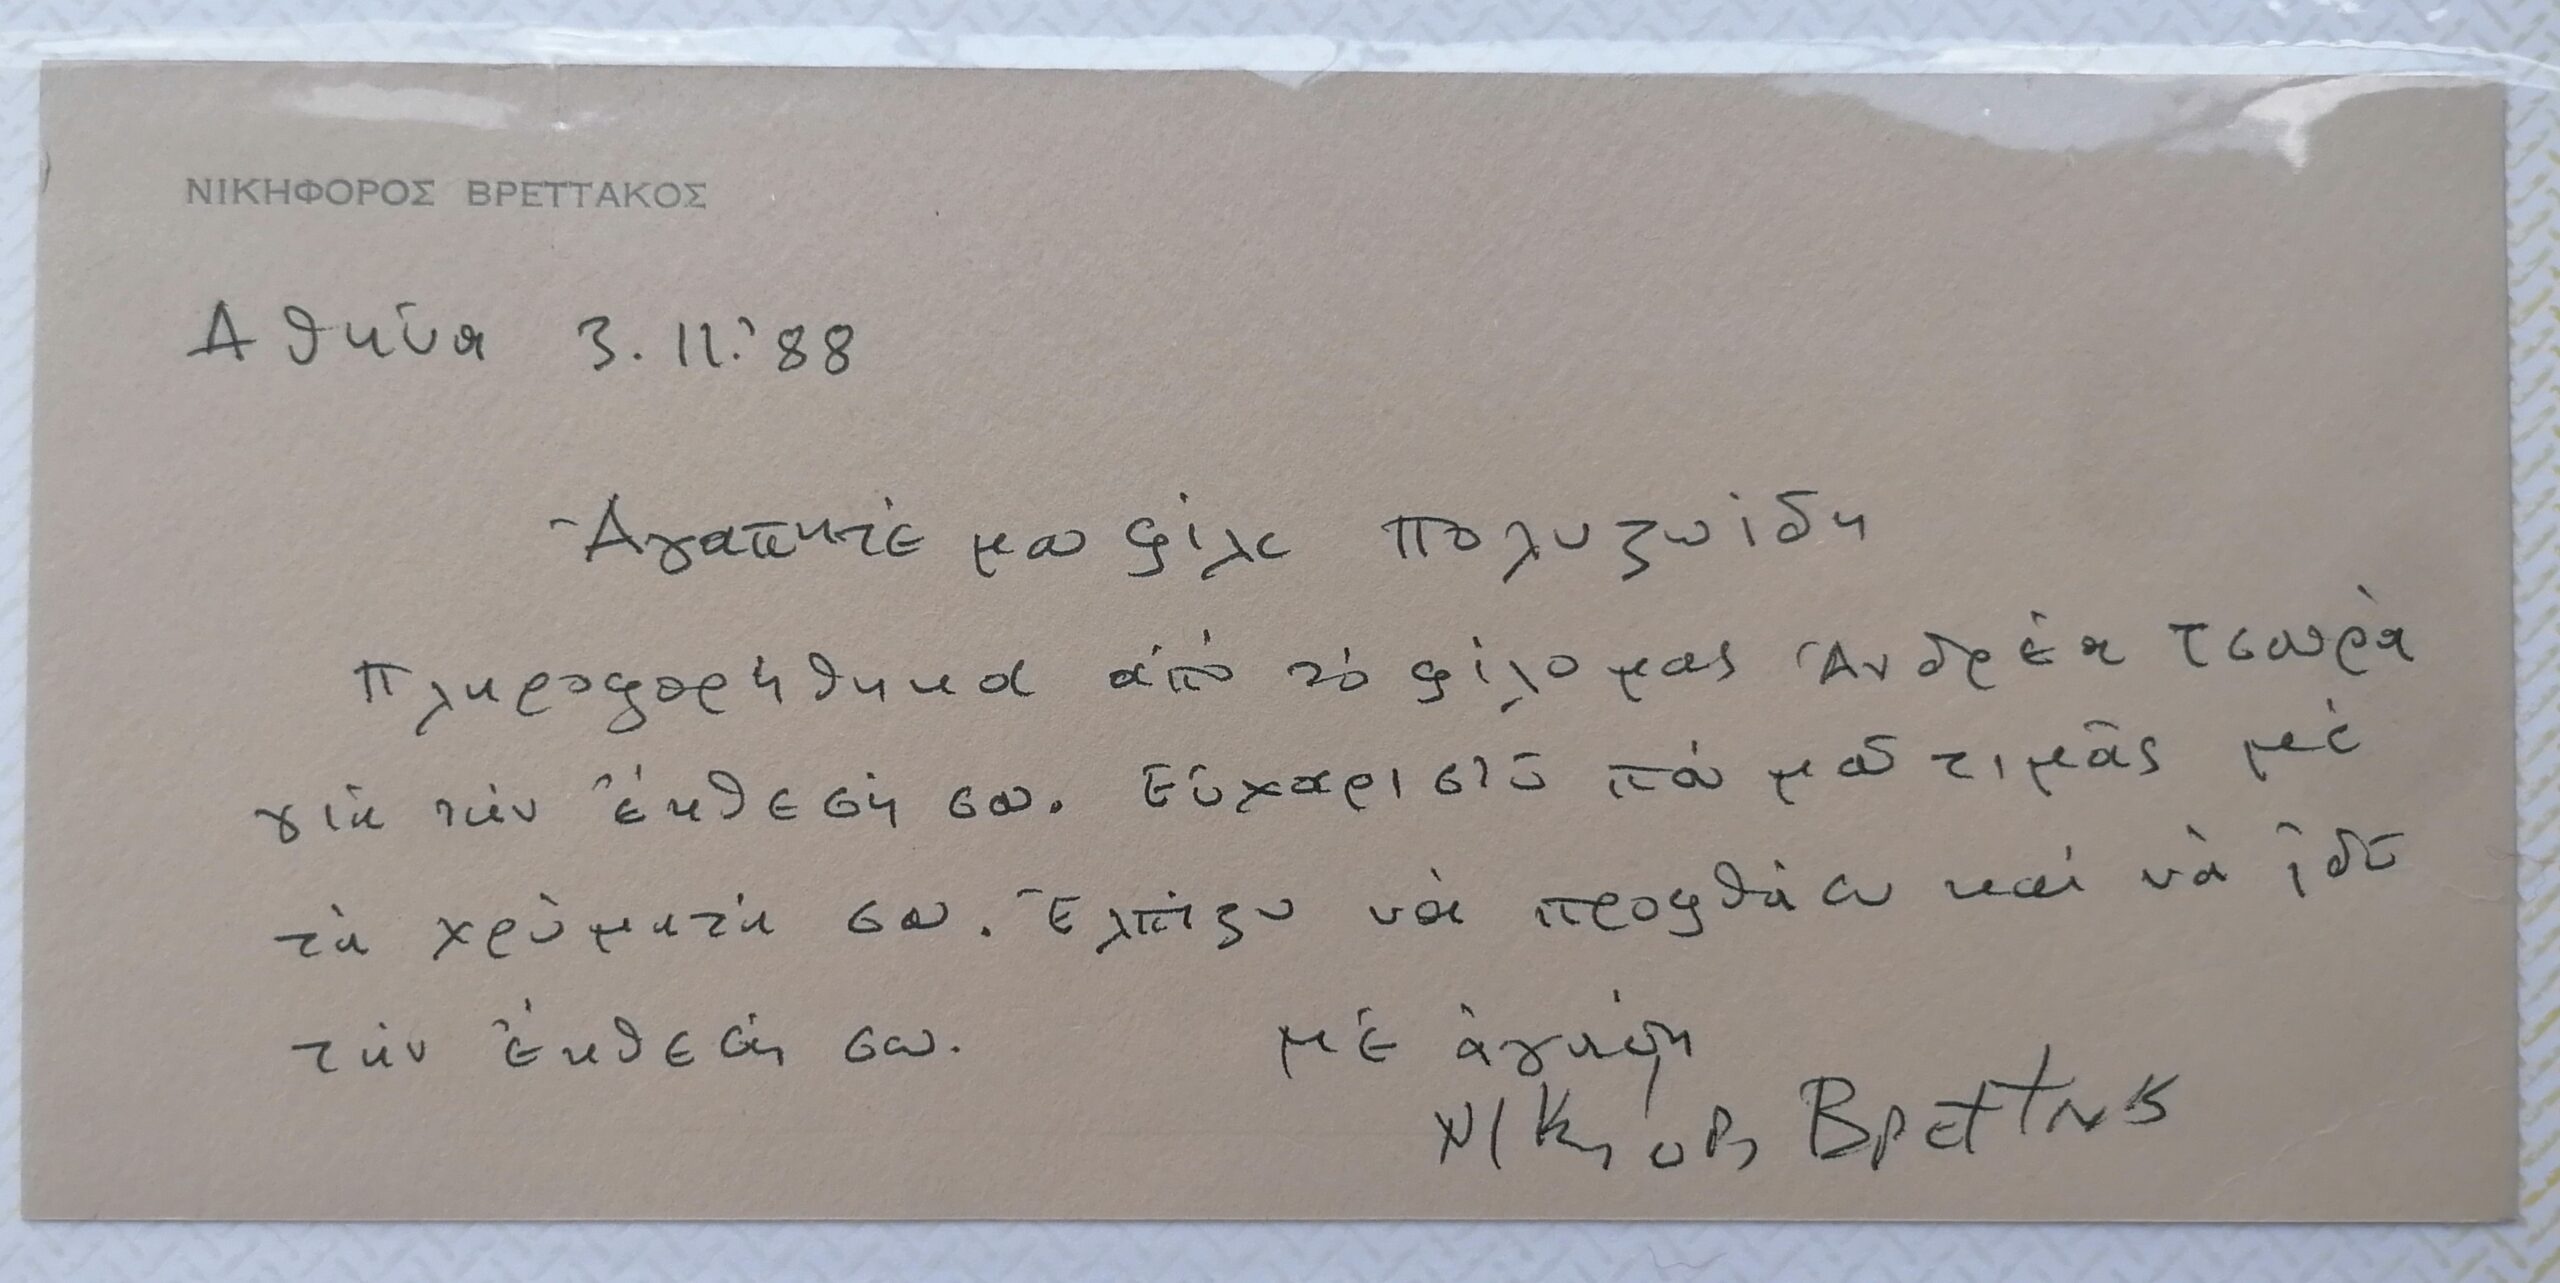 ΝΙΚΗΦΟΡΟΣ ΒΡΕΤΤΑΚΟΣ
Ἀθήνα 3.11.'88
Ἀγαπητέ μου φίλε Πολυζωίδη
Πληροφορήθηκα ἀπό τό φίλο μας Ἀνδρέα Τσουρᾶ
γιά τήν ἔκθεσή σου. Εὐχαριστῶ πού μοῦ τιμᾶς μέ
τά χρώματά σου. Ἐλπίζω νά προφθάσω καί νά ἰδῶ
τήν ἔκθεσή σου. μέ ἀγάπη
Νικηφόρος Βρεττάκος